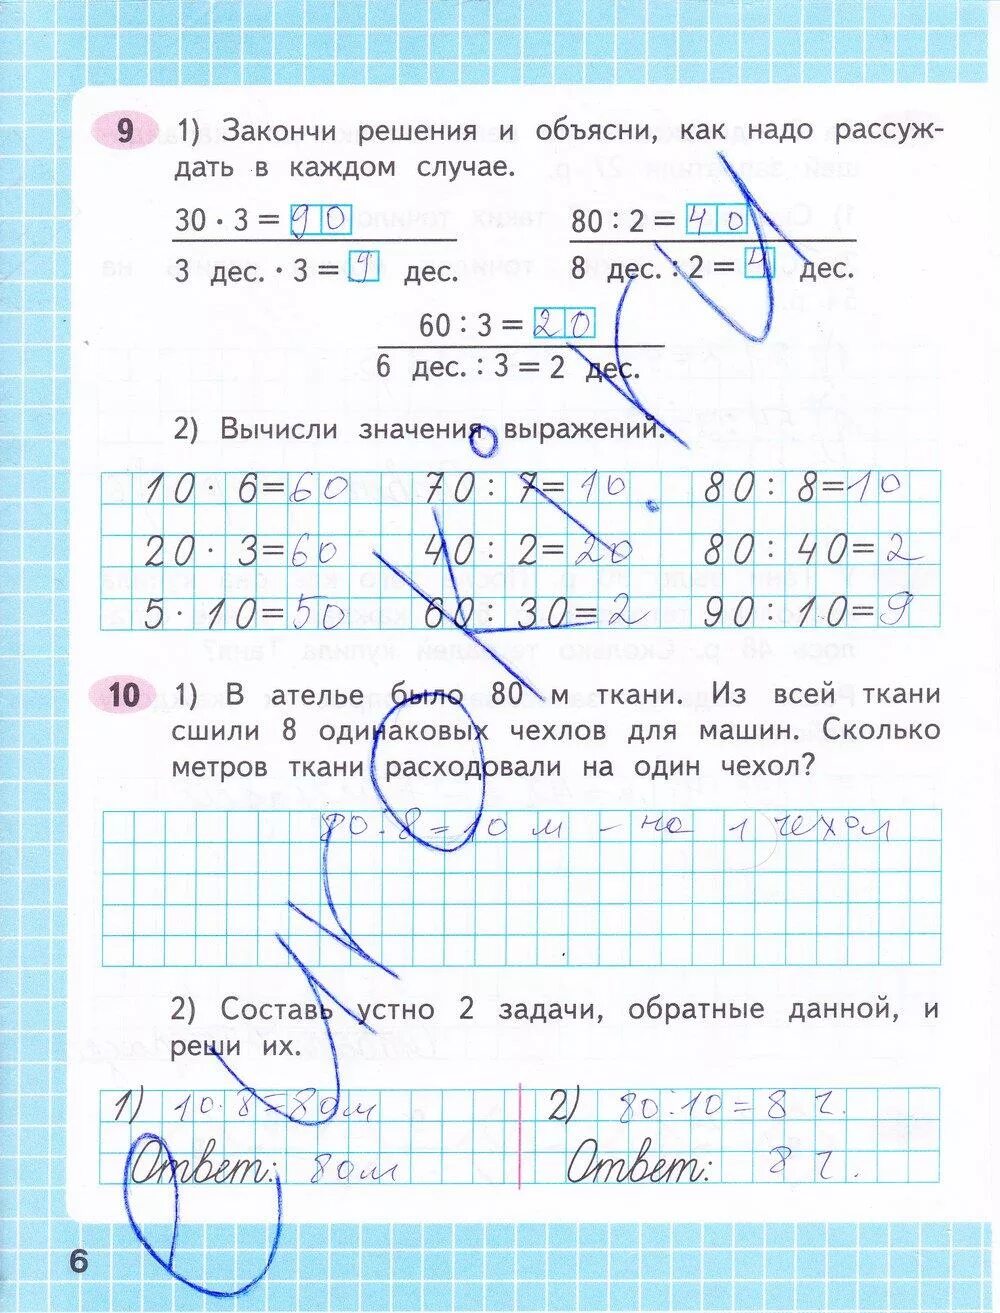 9 1) Закончи решения и объясни, как надо рассуж-
дать в каждом случае.
30 · 3 = 90 80 : 2 = 40
3 дес. · 3 = 9 дес. 8 дес. : 2 = 4 дес.
60 : 3 = 20
6 дес. : 3 = 2 дес.
2) Вычисли значения выражений.
10 · 6 = 60 70 : 7 = 10 80 : 8 = 10
20 · 3 = 60 40 : 2 = 20 80 : 40 = 2
5 · 10 = 50 60 : 30 = 2 90 : 10 = 9
10 1) В ателье было 80 м ткани. Из всей ткани
сшили 8 одинаковых чехлов для машин. Сколько
метров ткани расходовали на один чехол?
80 : 8 = 10 м – на 1 чехол
2) Составь устно 2 задачи, обратные данной, и
реши их.
1) 10 · 8 = 80 м 2) 80 : 10 = 8 ч.
Ответ: 80 м Ответ: 8 ч.
6